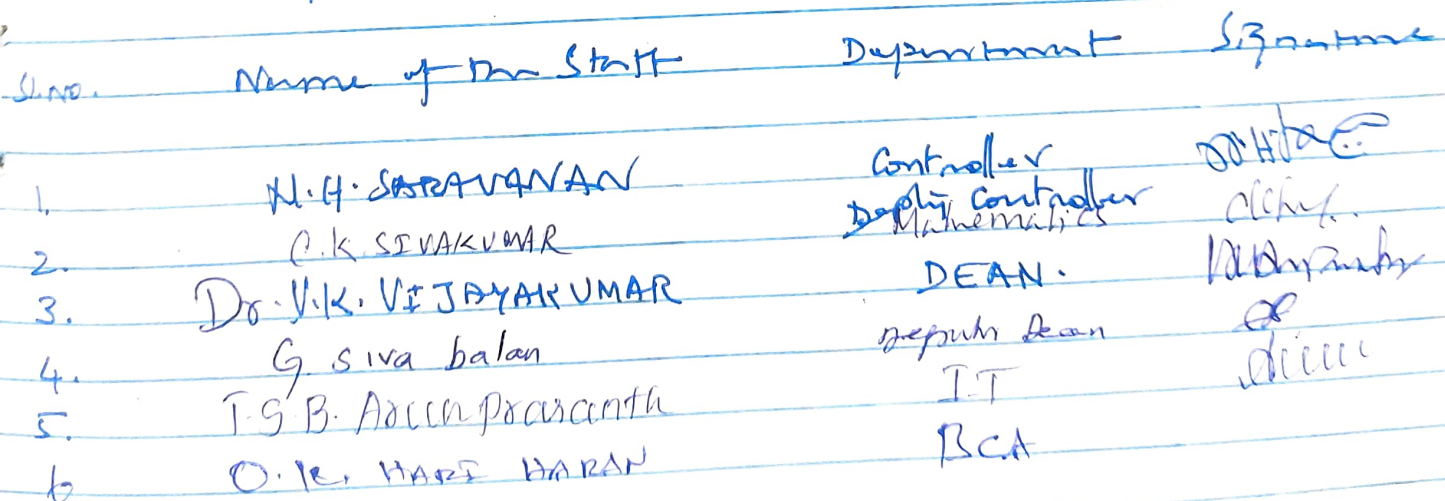 Sl.No. Name of the Staff Department Signature
1. N.H. SARAVANAN Controller
Deputy Controller
2. C.K. SIVAKUMAR Mathematics
3. Dr. V.K. VIJAYAKUMAR DEAN.
4. G. Siva balan Deputy Dean
5. T.G.B. Arun prasanth I.T
6 O.K. HARI HARAN BCA